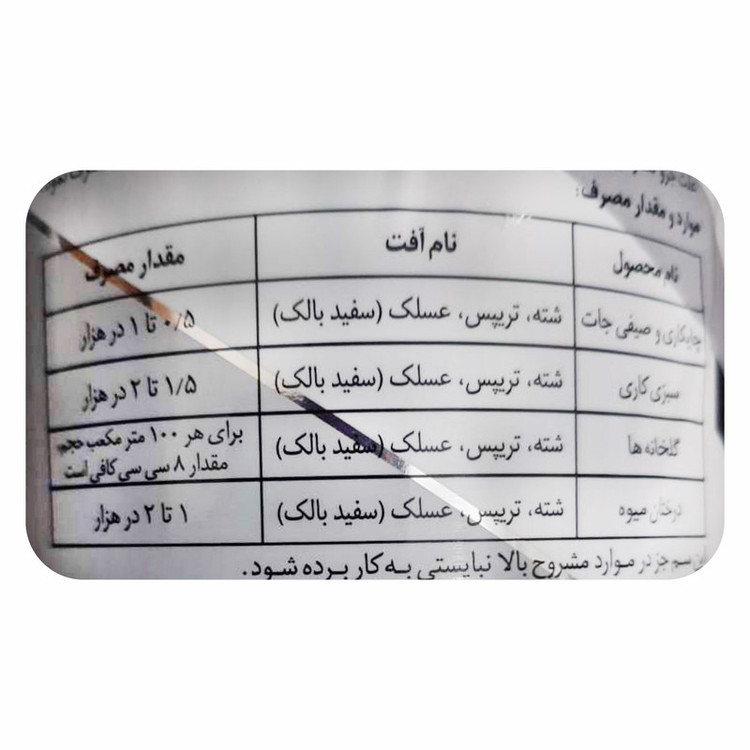 موارد و مقدار مصرف:
نام محصول نام آفت مقدار مصرف
چایکاری و صیفی جات شته، تریپس، عسلک (سفید بالک) ۰/۵ تا ۱ در هزار
سبزی کاری شته، تریپس، عسلک (سفید بالک) ۱/۵ تا ۲ در هزار
گلخانه ها شته، تریپس، عسلک (سفید بالک) برای هر ۱۰۰ متر مکعب حجم
مقدار ۸ سی سی کافی است
درختان میوه شته، تریپس، عسلک (سفید بالک) ۱ تا ۲ در هزار
این سم جز در موارد مشروح بالا نبایستی به کار برده شود.